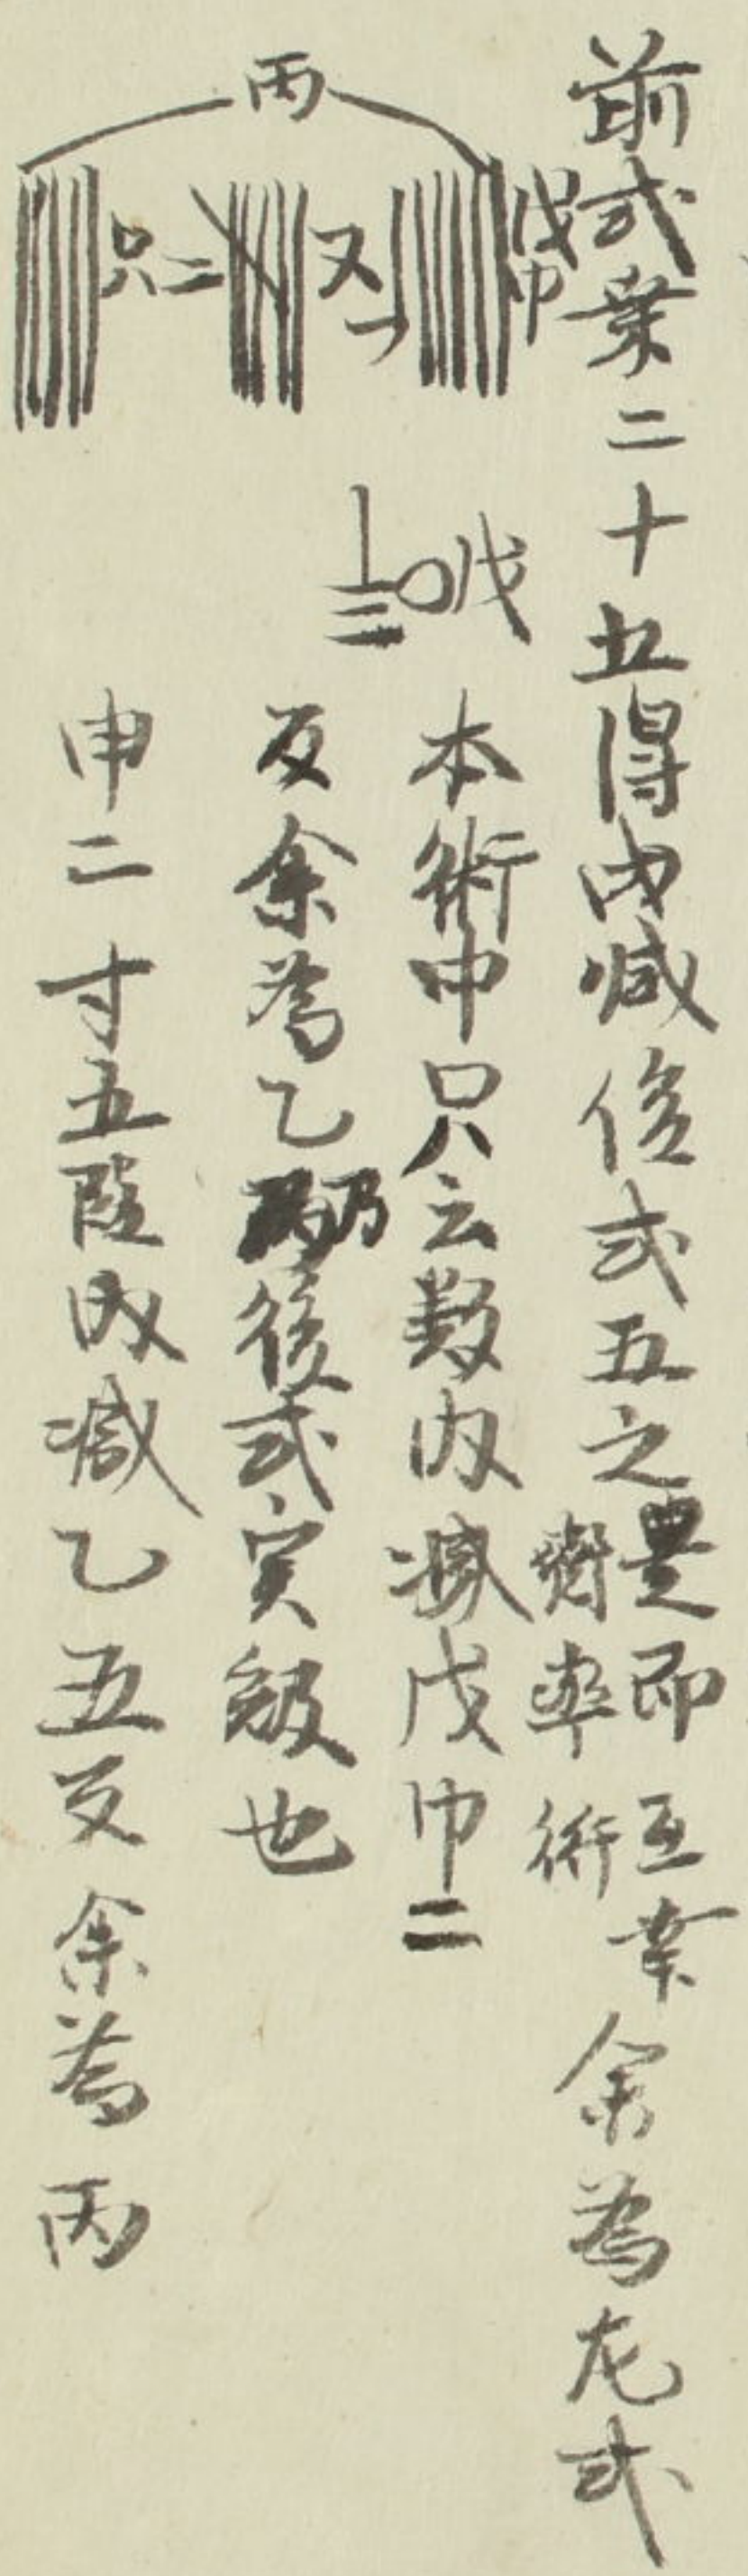 前式乗二十五得内減後式五之
是即互乗
齊率術
余為左式
丙
戊巾
又
只二
戊
本術中只云数内減戊巾二
反余為乙乃後式実級也
申二寸五段内減乙五反余為丙